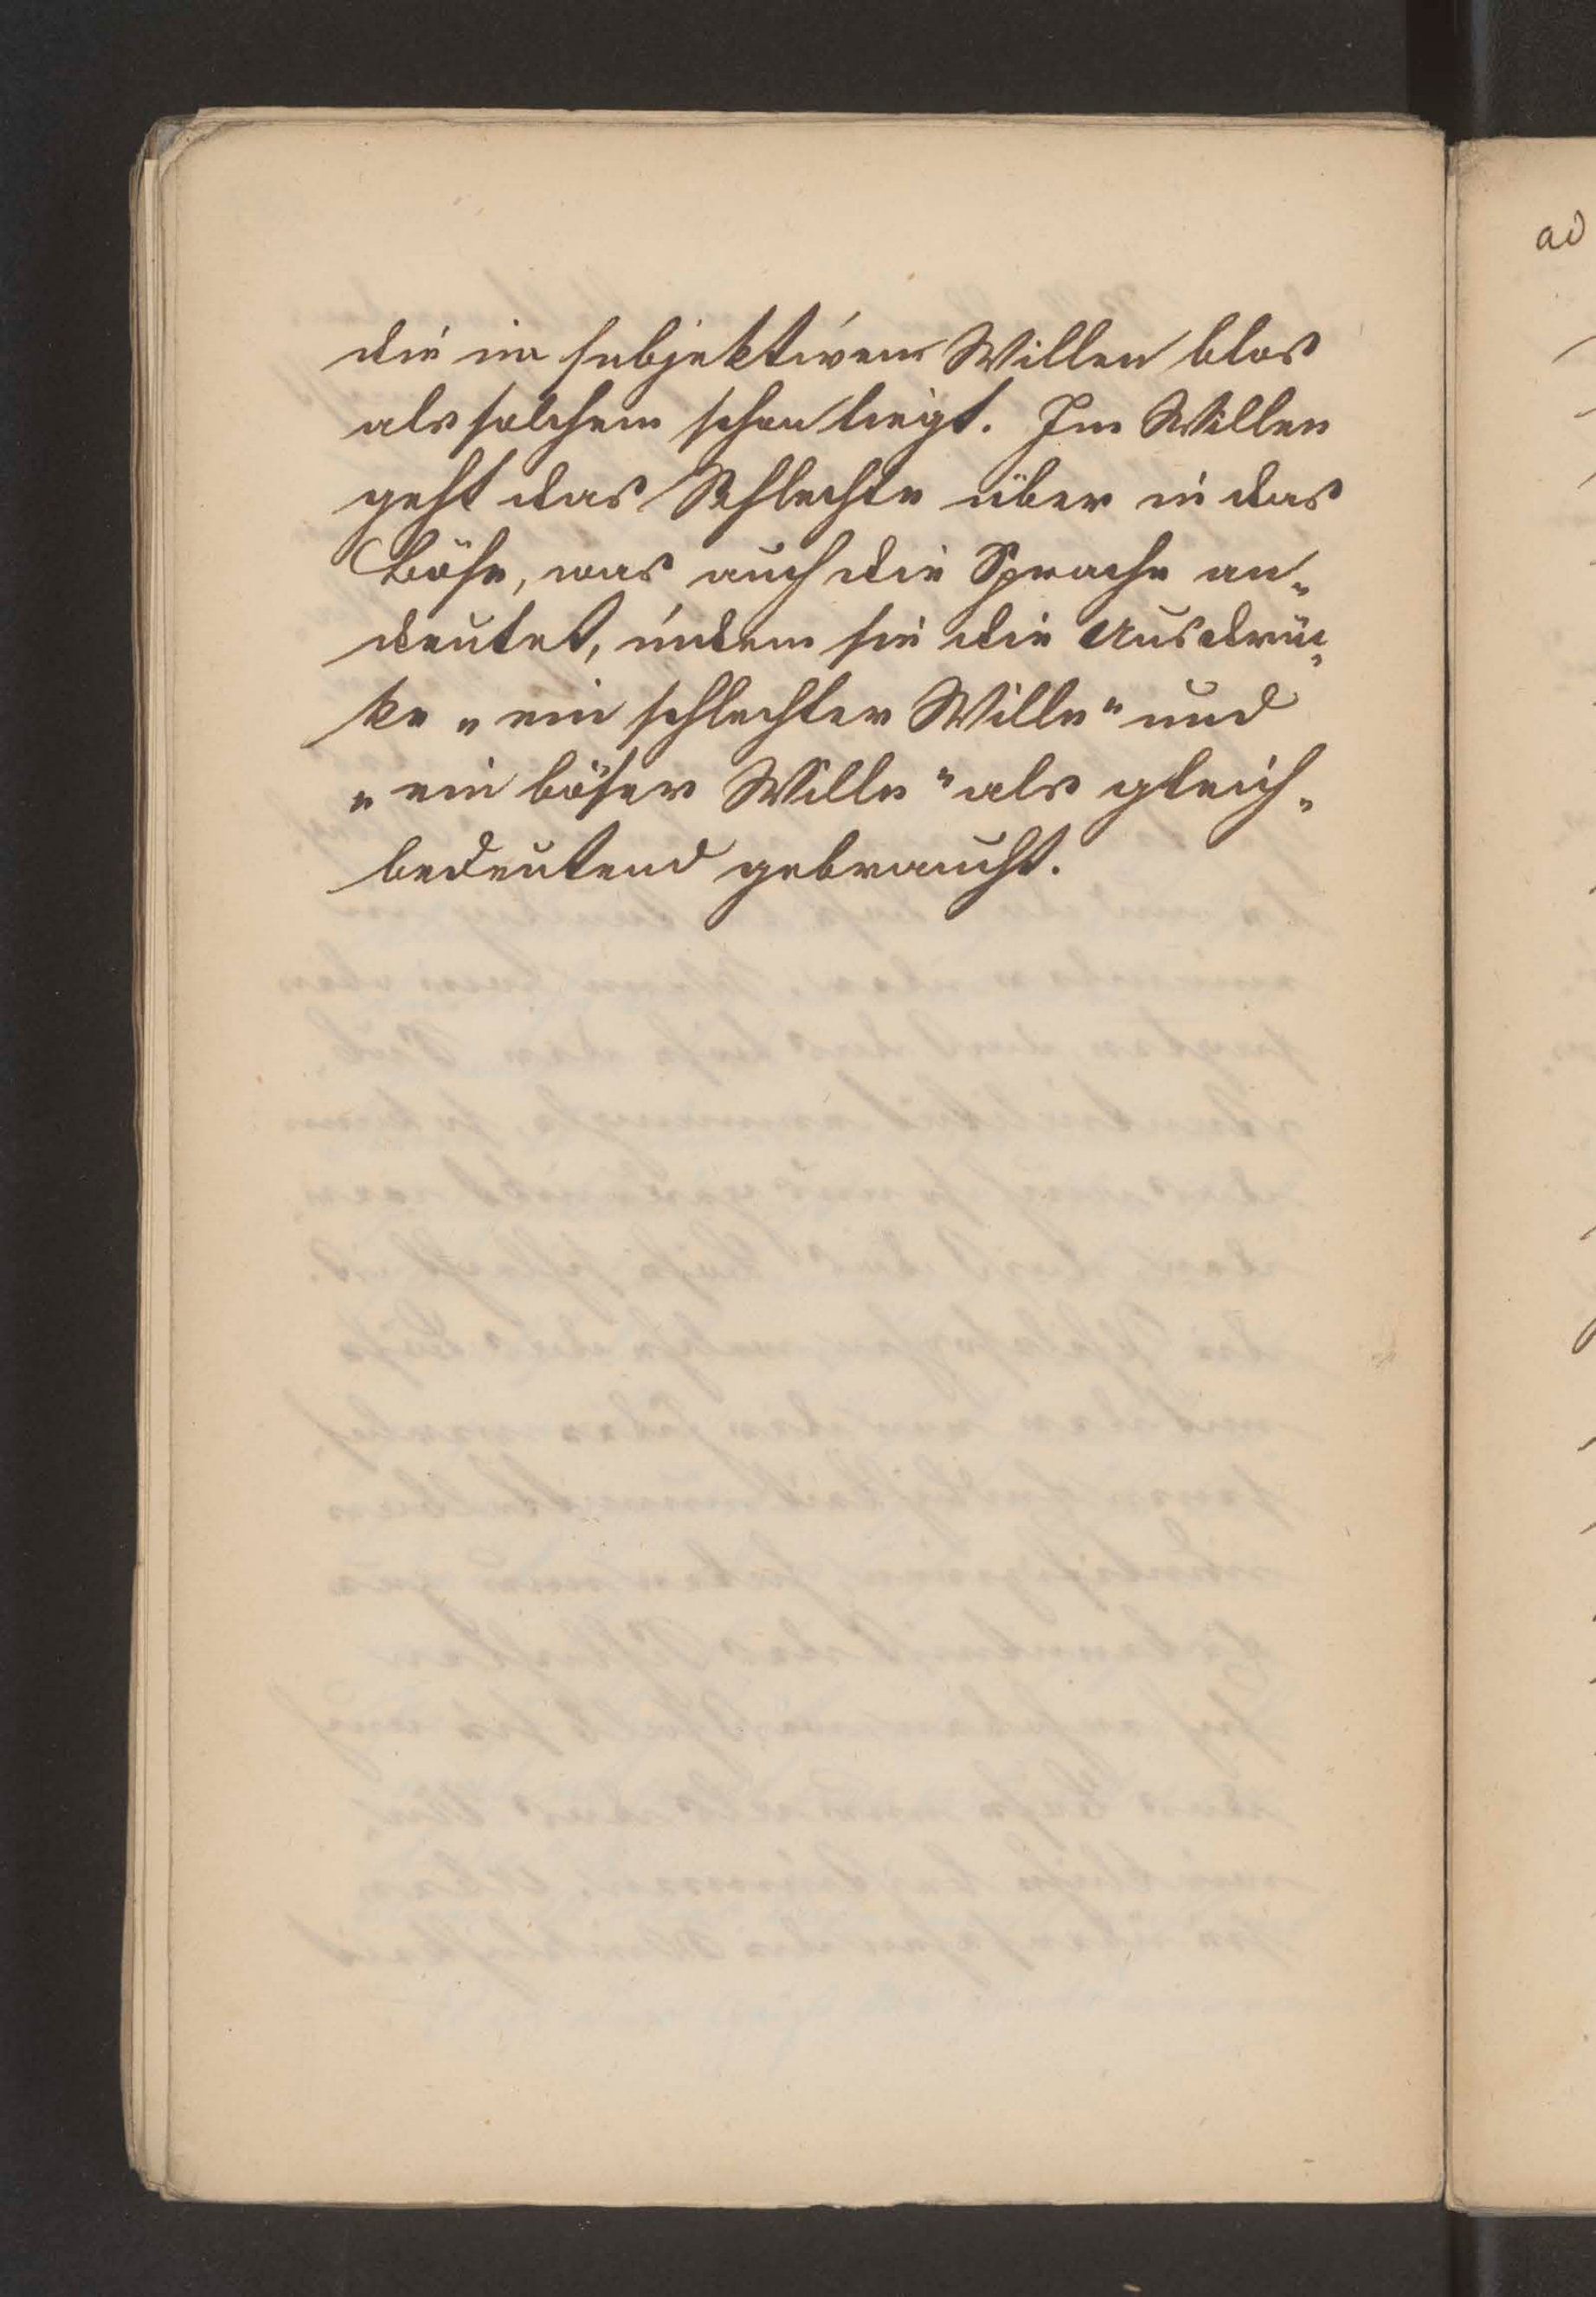 die im subjektiven Willen blos
als solchem schon liegt. Im Willen
geht das Schlechte über in das
Böse, was auch die Sprache an-
deutet, indem sie die Ausdrü-
ke „ein schlechter Wille" und
„ein böser Wille" als gleich-
bedeutend gebraucht.
ad